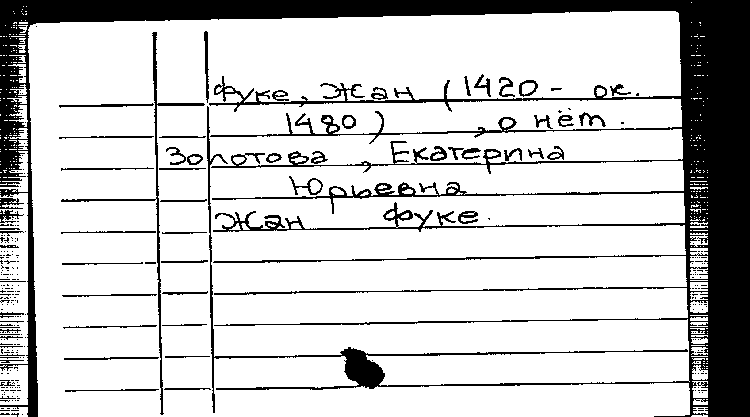 Фуке, Жан (1420 - ок.
1480) , о нём.
Золотова , Екатерина
Юрьевна
Жан Фуке.